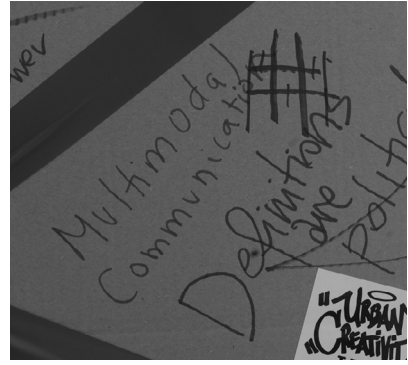 Multimodal
Communication
#
Definitions
are
politic
"URBAN
"CREATIVIT